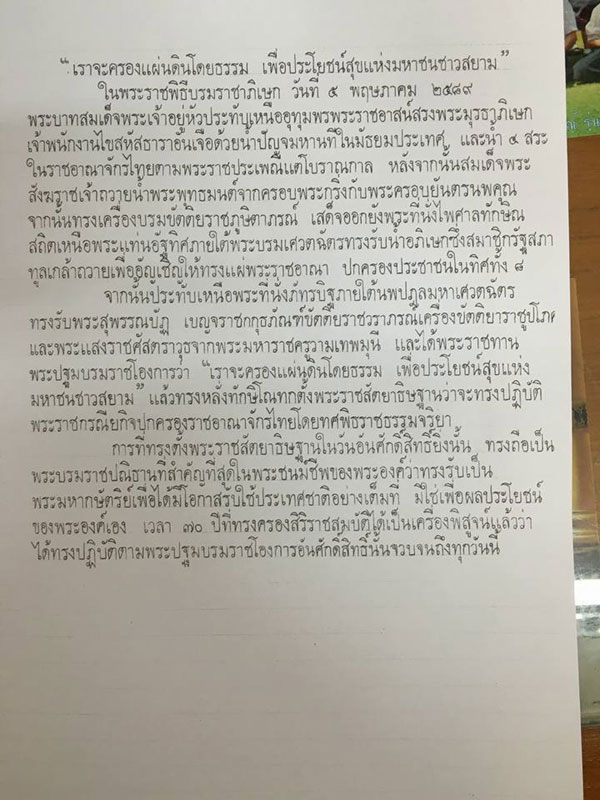 “เราจะครองแผ่นดินโดยธรรม เพื่อประโยชน์สุขแห่งมหาชนชาวสยาม”
ในพระราชพิธีบรมราชาภิเษก วันที่ ๕ พฤษภาคม ๒๕๘๙
พระบาทสมเด็จพระเจ้าอยู่หัวประทับเหนืออุทุมพรพระราชอาสน์สรงพระมุรธาภิเษก
เจ้าพนักงานไขสหัสธาราอันเจือด้วยน้ำปัญจมหานทีในมัธยมประเทศ และน้ำ ๔ สระ
ในราชอาณาจักรไทยตามพระราชประเพณีแต่โบราณกาล หลังจากนั้นสมเด็จพระ
สังฆราชเจ้าถวายน้ำพระพุทธมนต์จากครอบพระกริ่งกับพระครอบยันตรนพคุณ
จากนั้นทรงเครื่องบรมขัตติยราชภูษิตาภรณ์ เสด็จออกยังพระที่นั่งไพศาลทักษิณ
สถิตเหนือพระแท่นอัฐทิศภายใต้พระบรมเศวตฉัตรทรงรับน้ำอภิเษกซึ่งสมาชิกรัฐสภา
ทูลเกล้าถวายเพื่ออัญเชิญให้ทรงแผ่พระราชอาณา ปกครองประชาชนในทิศทั้ง ๘
จากนั้นประทับเหนือพระที่นั่งภัทรบิฐภายใต้นพปฎลมหาเศวตฉัตร
ทรงรับพระสุพรรณบัฏ เบญจราชกกุธภัณฑ์ขัตติยราชวราภรณ์เครื่องขัตติยาราชูปโภค
และพระแสงราชศัสตราวุธจากพระมหาราชครูวามเทพมุนี และได้พระราชทาน
พระปฐมบรมราชโองการว่า “เราจะครองแผ่นดินโดยธรรม เพื่อประโยชน์สุขแห่ง
มหาชนชาวสยาม” แล้วทรงหลั่งทักษิโณทกตั้งพระราชสัตยาธิษฐานว่าจะทรงปฏิบัติ
พระราชกรณียกิจปกครองราชอาณาจักรไทยโดยทศพิธราชธรรมจริยา
การที่ทรงตั้งพระราชสัตยาธิษฐานในวันอันศักดิ์สิทธิ์ยิ่งนั้น ทรงถือเป็น
พระบรมราชปณิธานที่สำคัญที่สุดในพระชนม์ชีพของพระองค์ว่าทรงรับเป็น
พระมหากษัตริย์เพื่อได้มีโอกาสรับใช้ประเทศชาติอย่างเต็มที่ มิใช่เพื่อผลประโยชน์
ของพระองค์เอง เวลา ๗๐ ปีที่ทรงครองสิริราชสมบัติได้เป็นเครื่องพิสูจน์แล้วว่า
ได้ทรงปฏิบัติตามพระปฐมบรมราชโองการอันศักดิ์สิทธิ์นั้นจวบจนถึงทุกวันนี้